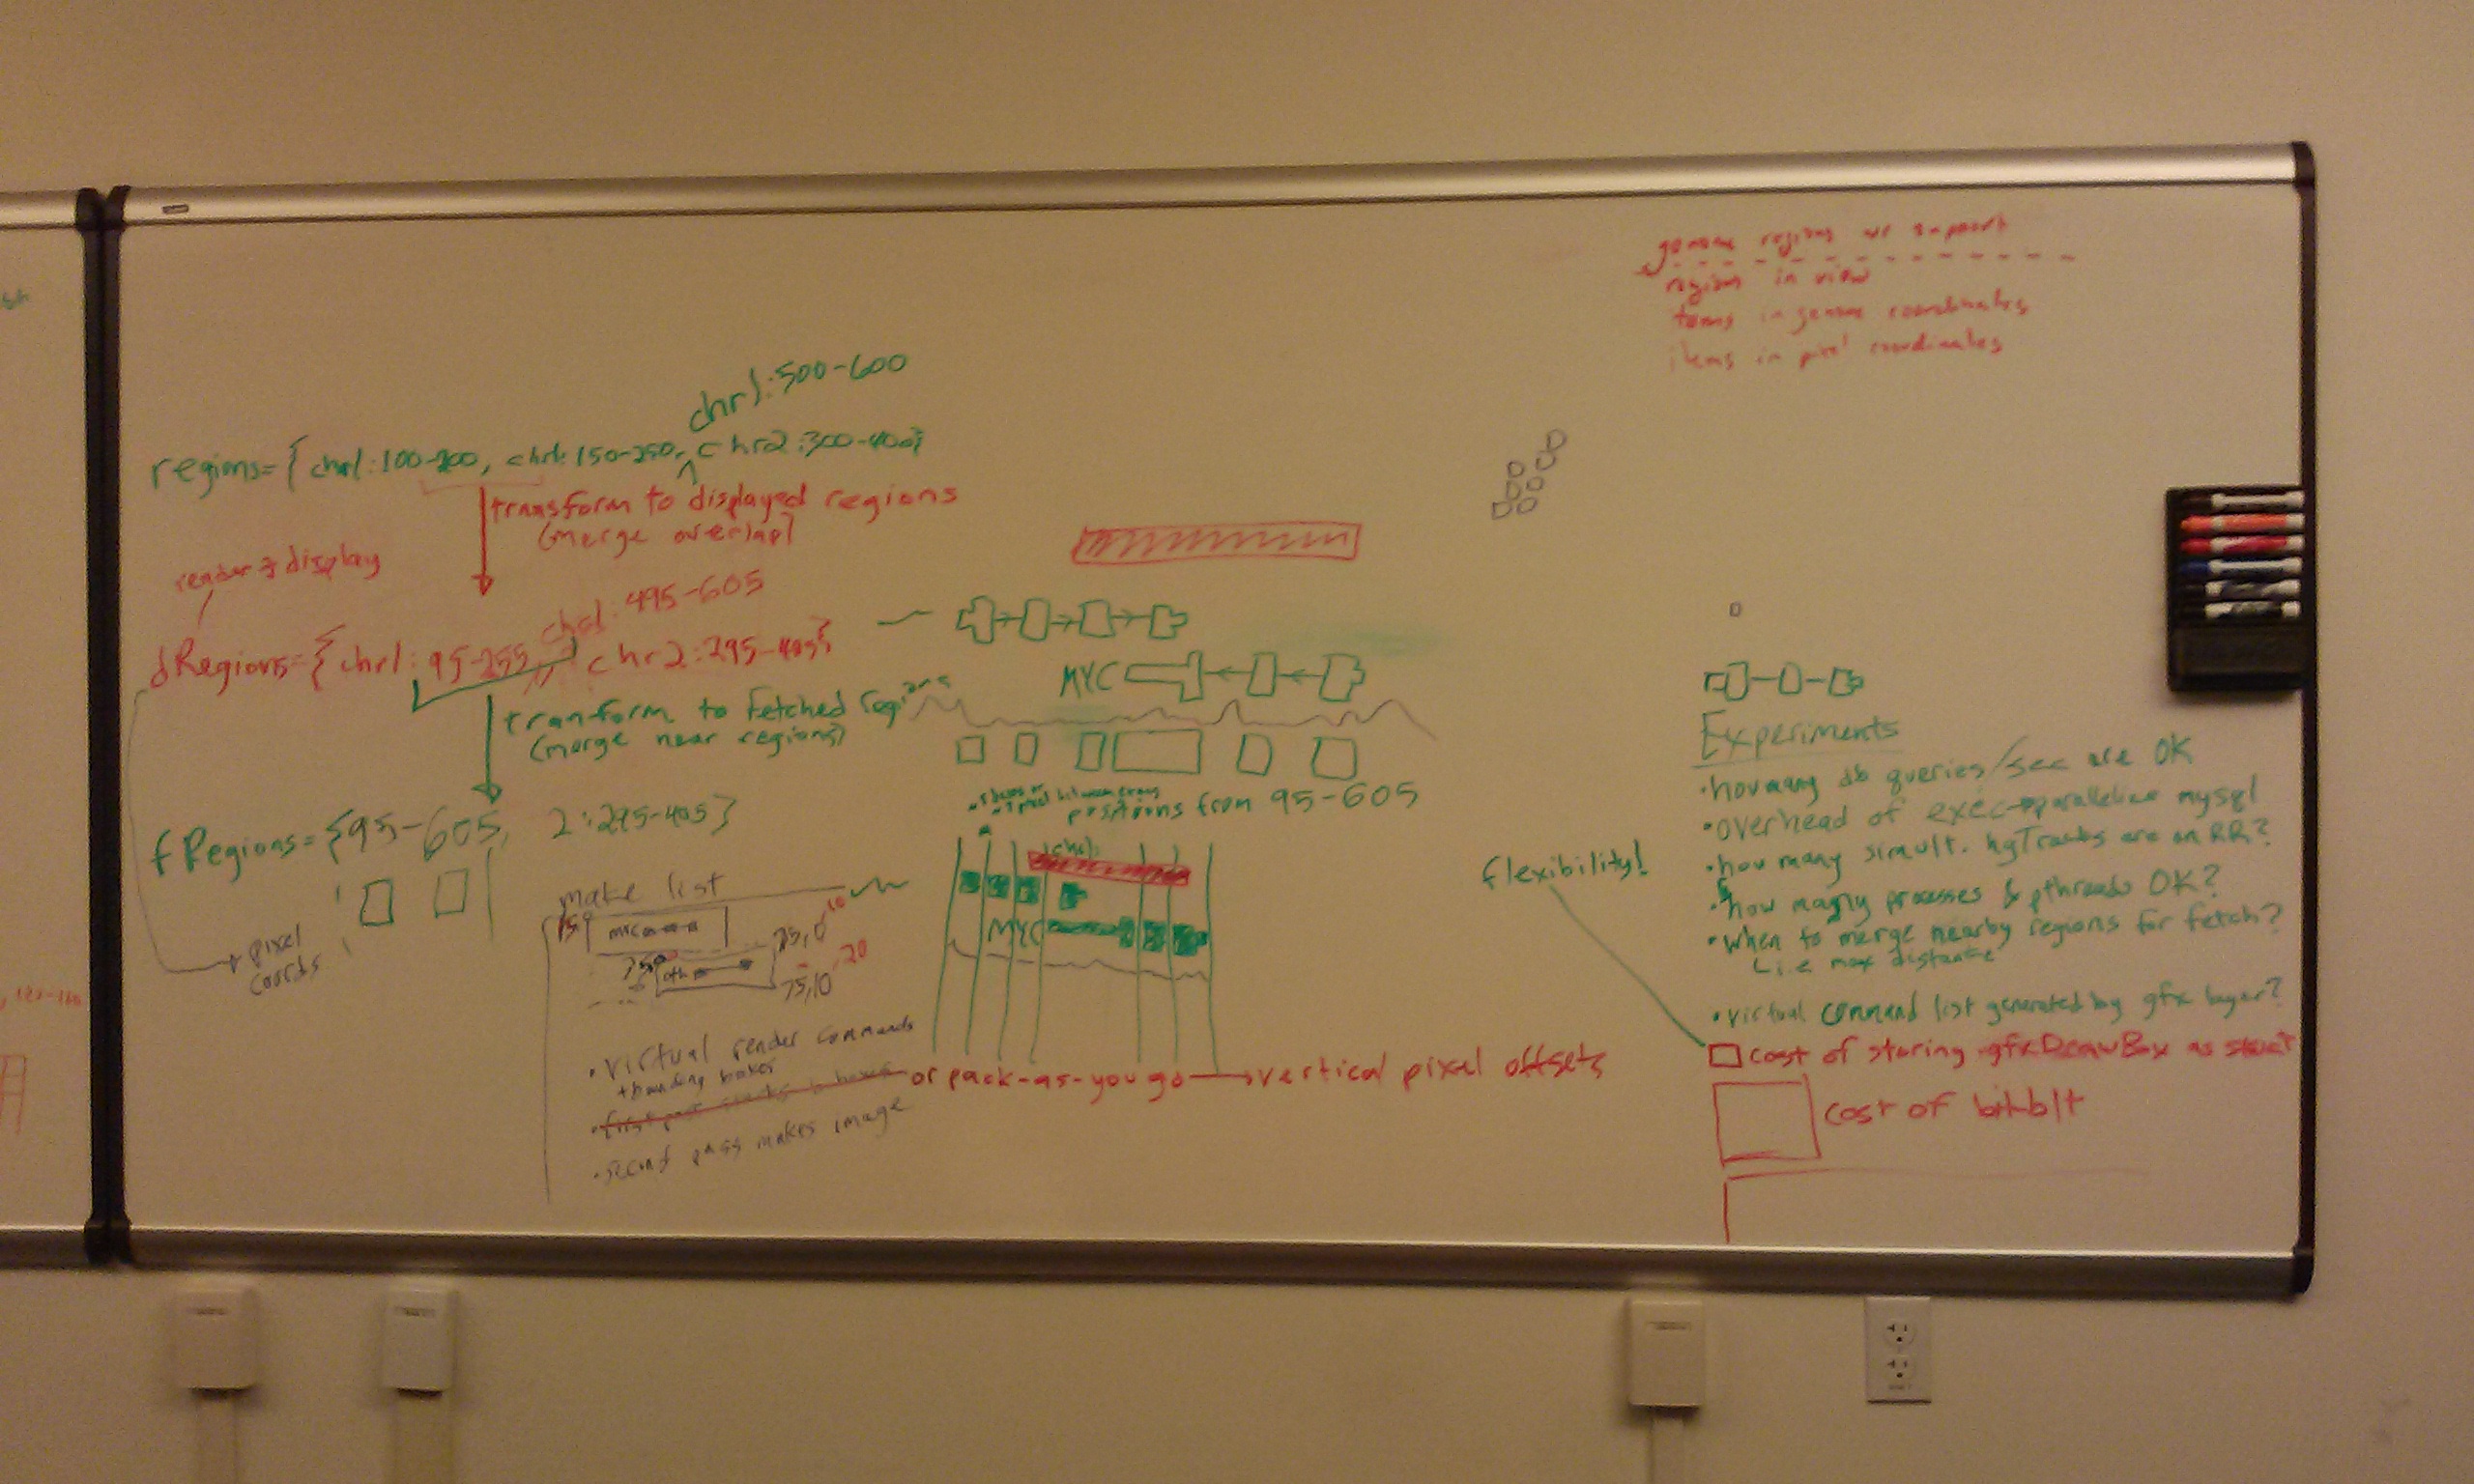 genome regions w/ support
regions in view
items in genome coordinates
items in pixel coordinates
chr1:500-600
regions={chr1:100-200, chr1:150-250, chr2:300-400}
transform to displayed regions
(merge overlap)
render & display
chr1:495-605
dRegions={chr1:95-255, chr2:295-405}
transform to fetched regions
(merge near regions)
fRegions={95-605, 2:295-405}
pixel
coords
MYC
positions from 95-605
chr1:
MYC
make list
150
MYC
75,0
10
750
oth
20
75,10
• virtual render commands
+ bounding boxes
• first pass
• second pass makes image
or pack-as-you go → vertical pixel offsets
flexibility!
Experiments
• how many db queries/sec are OK
• overhead of exec parallelize mysql
• how many simult. hgTracks are on RR?
• how many processes & pthreads OK?
• when to merge nearby regions for fetch?
i.e max distance
• virtual command list generated by gfx layer?
cost of storing gfxDrawBox as struct
cost of bitblt